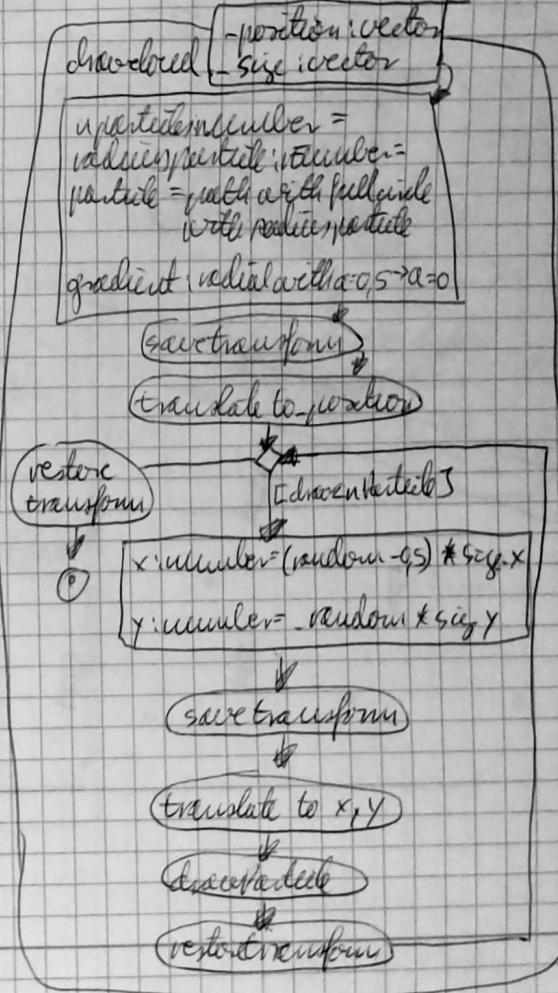 drawcloud
-position:vector
-size:vector
nparticle:number=
radiusparticle:number=
particle = path with full circle
with radius particle
gradient : radial with a=0,5→a=0
save transform
translate to position
restore
transform
[drawnParticle]
x:number=(random-0,5)*size.x
y:number=-random*size.y
save transform
translate to x,y
drawParticle
restore transform